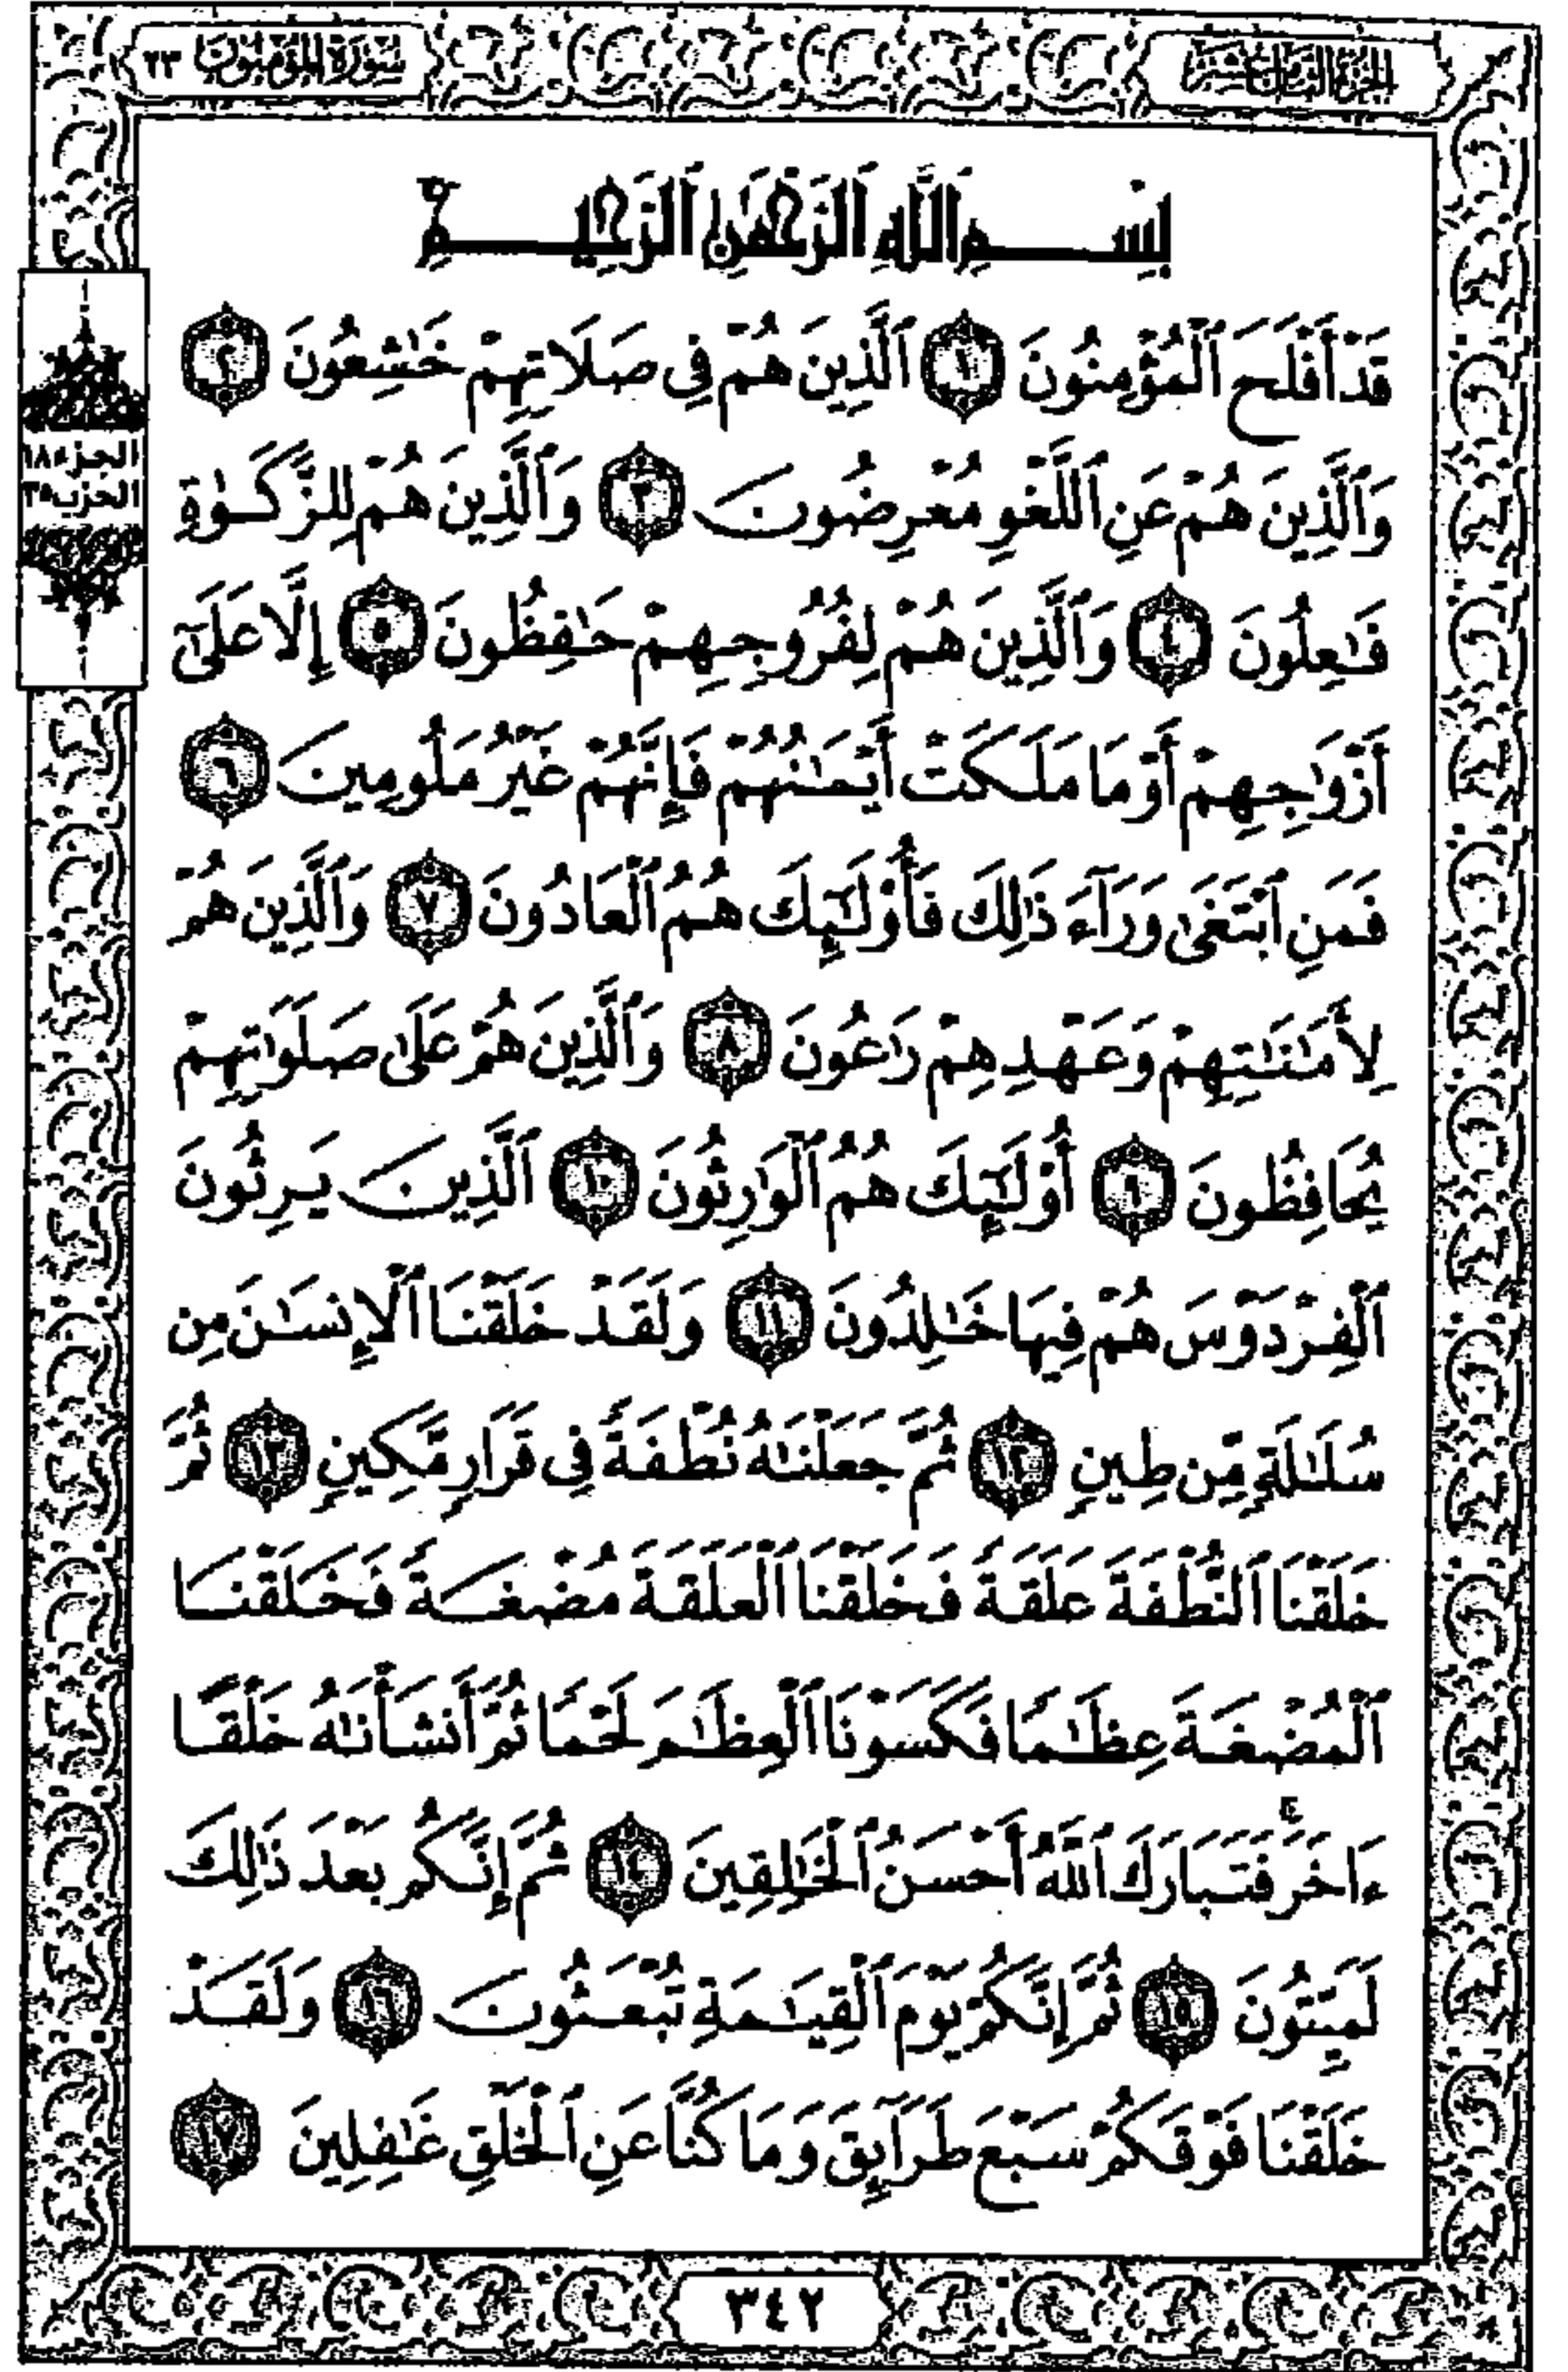 الجزء الثامن عشر
سورة المؤمنون ٢٣
بِسْمِ ٱللَّهِ ٱلرَّحْمَٰنِ ٱلرَّحِيمِ
قَدْ أَفْلَحَ ٱلْمُؤْمِنُونَ ١ ٱلَّذِينَ هُمْ فِي صَلَاتِهِمْ خَٰشِعُونَ ٢
وَٱلَّذِينَ هُمْ عَنِ ٱللَّغْوِ مُعْرِضُونَ ٣ وَٱلَّذِينَ هُمْ لِلزَّكَوٰةِ
فَٰعِلُونَ ٤ وَٱلَّذِينَ هُمْ لِفُرُوجِهِمْ حَٰفِظُونَ ٥ إِلَّا عَلَىٰٓ
أَزْوَٰجِهِمْ أَوْ مَا مَلَكَتْ أَيْمَٰنُهُمْ فَإِنَّهُمْ غَيْرُ مَلُومِينَ ٦
فَمَنِ ٱبْتَغَىٰ وَرَآءَ ذَٰلِكَ فَأُوْلَٰٓئِكَ هُمُ ٱلْعَادُونَ ٧ وَٱلَّذِينَ هُمْ
لِأَمَٰنَٰتِهِمْ وَعَهْدِهِمْ رَٰعُونَ ٨ وَٱلَّذِينَ هُمْ عَلَىٰ صَلَوَٰتِهِمْ
يُحَافِظُونَ ٩ أُوْلَٰٓئِكَ هُمُ ٱلْوَٰرِثُونَ ١٠ ٱلَّذِينَ يَرِثُونَ
ٱلْفِرْدَوْسَ هُمْ فِيهَا خَٰلِدُونَ ١١ وَلَقَدْ خَلَقْنَا ٱلْإِنسَٰنَ مِن
سُلَٰلَةٍ مِّن طِينٍ ١٢ ثُمَّ جَعَلْنَٰهُ نُطْفَةً فِي قَرَارٍ مَّكِينٍ ١٣ ثُمَّ
خَلَقْنَا ٱلنُّطْفَةَ عَلَقَةً فَخَلَقْنَا ٱلْعَلَقَةَ مُضْغَةً فَخَلَقْنَا
ٱلْمُضْغَةَ عِظَٰمًا فَكَسَوْنَا ٱلْعِظَٰمَ لَحْمًا ثُمَّ أَنشَأْنَٰهُ خَلْقًا
ءَاخَرَۚ فَتَبَارَكَ ٱللَّهُ أَحْسَنُ ٱلْخَٰلِقِينَ ١٤ ثُمَّ إِنَّكُم بَعْدَ ذَٰلِكَ
لَمَيِّتُونَ ١٥ ثُمَّ إِنَّكُمْ يَوْمَ ٱلْقِيَٰمَةِ تُبْعَثُونَ ١٦ وَلَقَدْ
خَلَقْنَا فَوْقَكُمْ سَبْعَ طَرَآئِقَ وَمَا كُنَّا عَنِ ٱلْخَلْقِ غَٰفِلِينَ ١٧
الجزء ١٨
الحزب ٣٥
٣٤٢